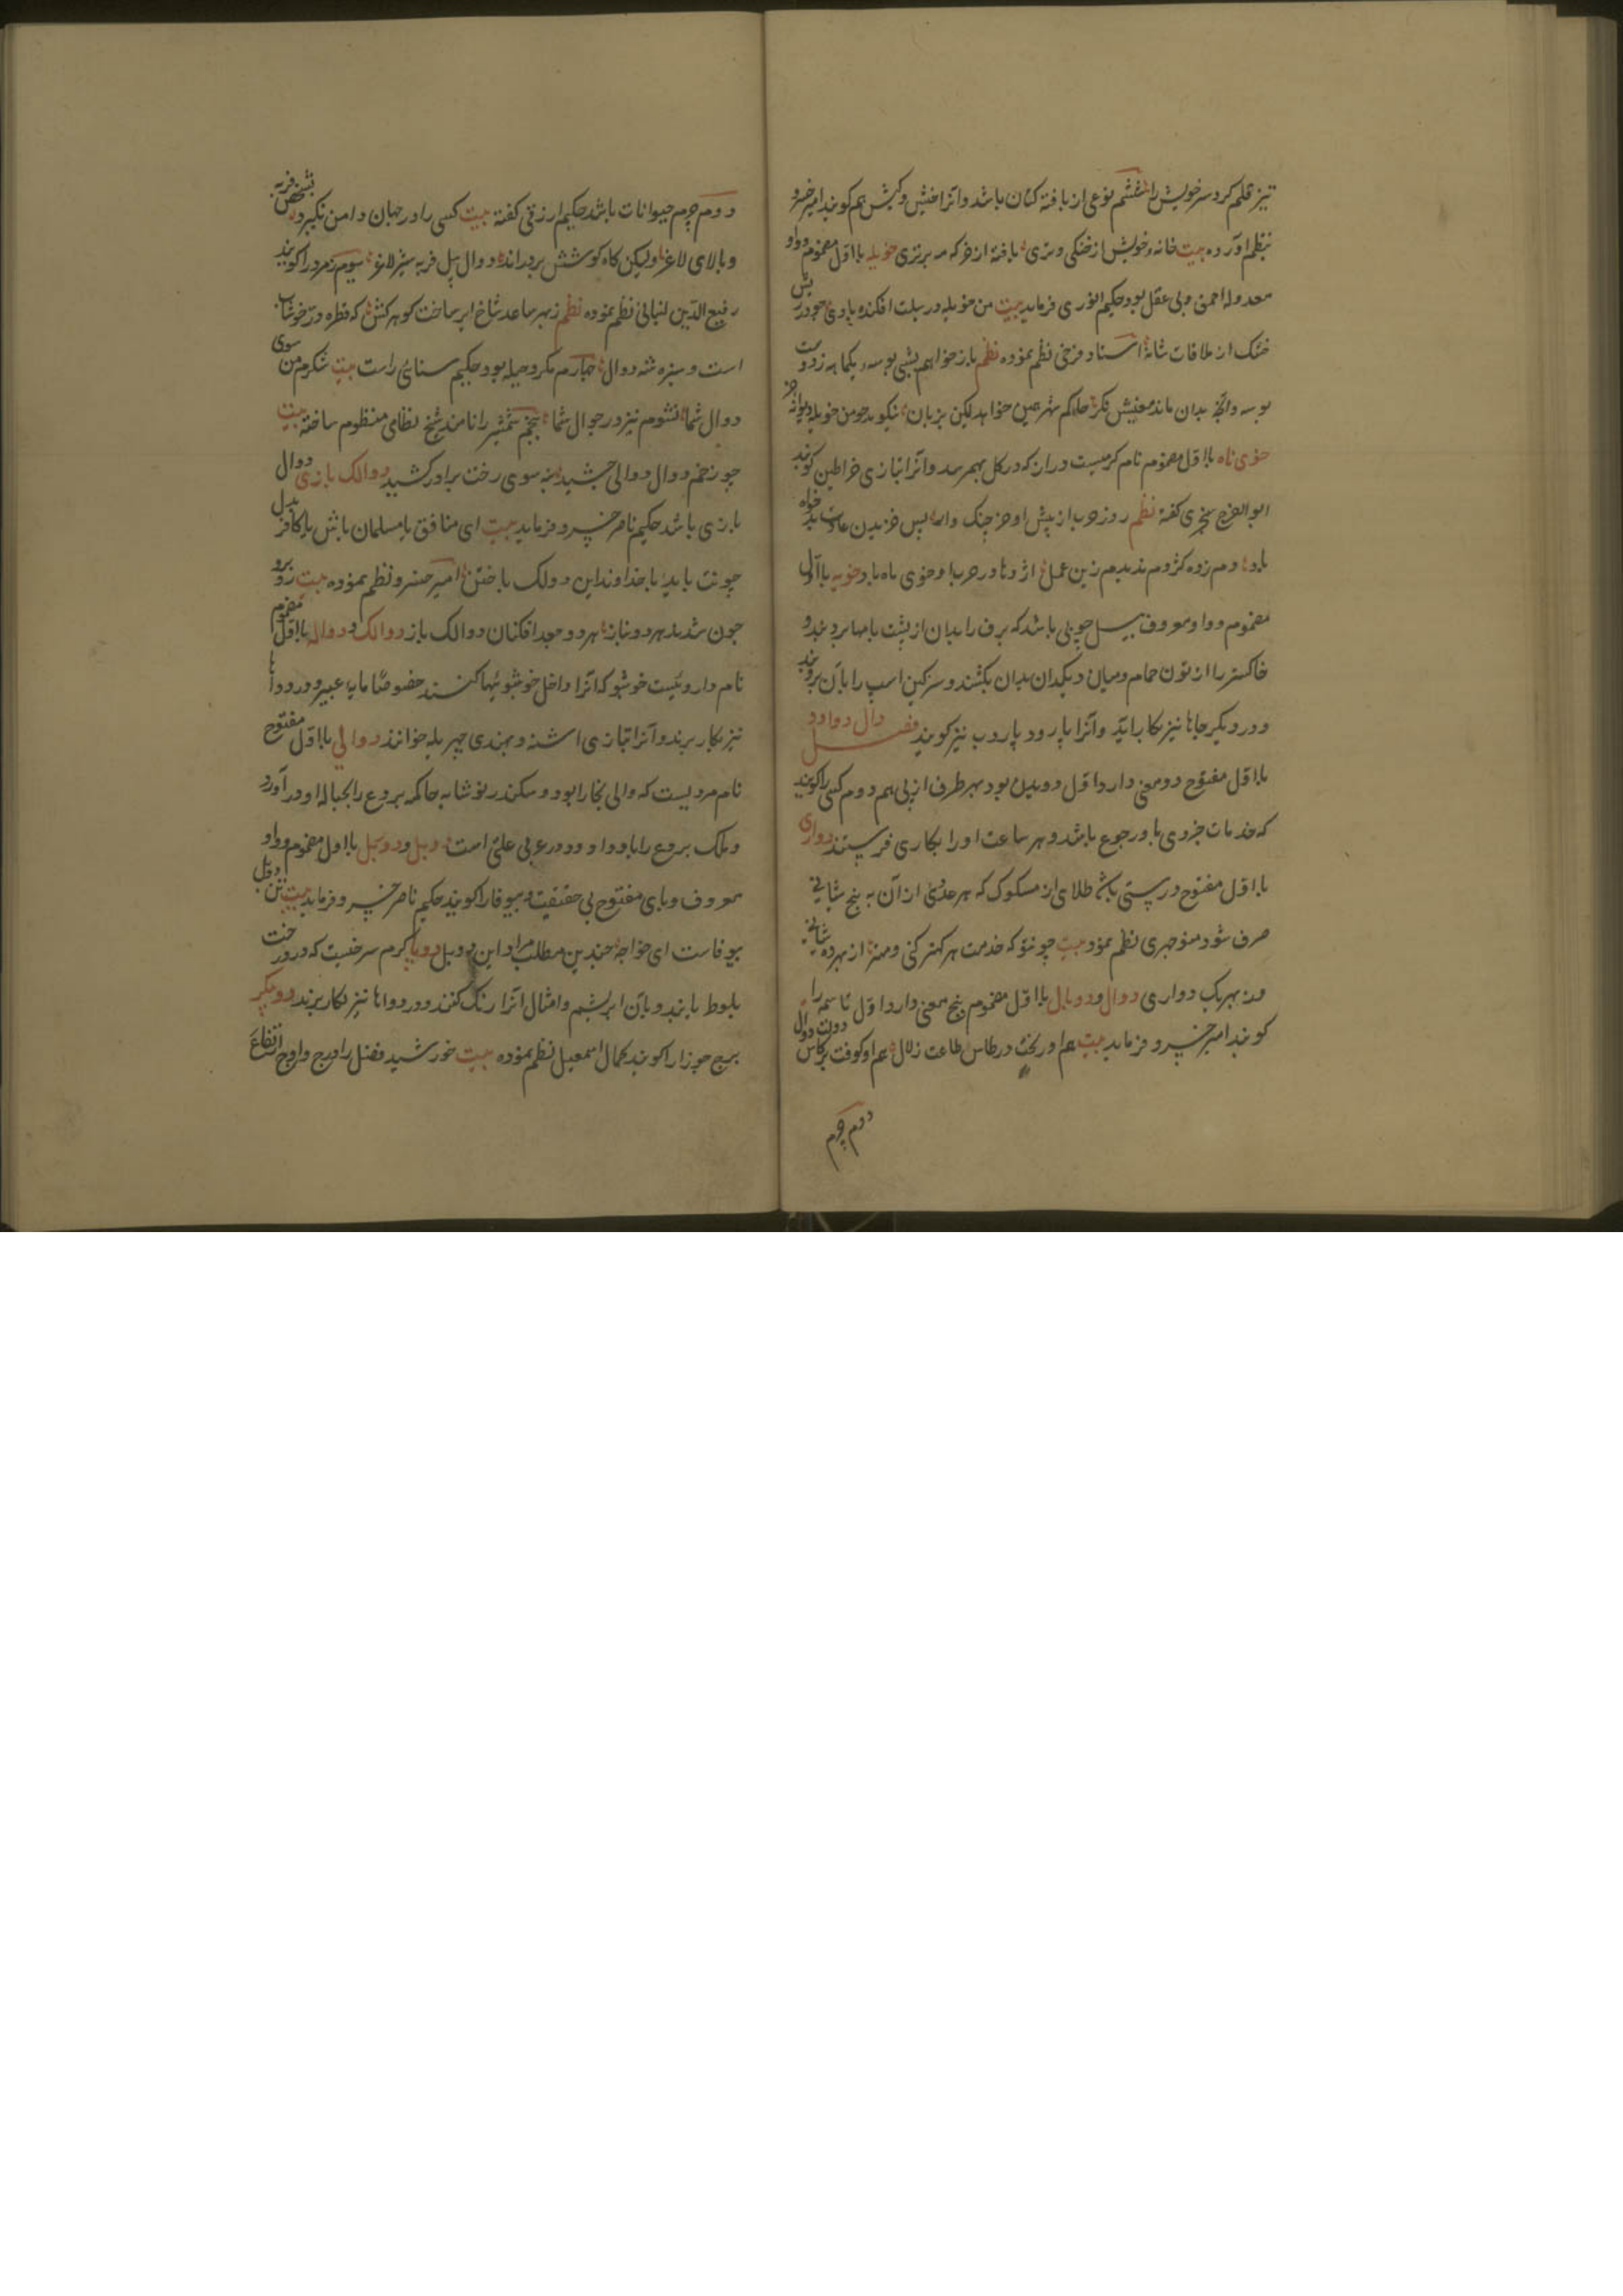 تیز قلم کرد سر خویش را ششم نوعی از بافته کتان باشد و آنرا خیش و کیش هم کویند امیر خسرو
بنظم آورده بیت خانه خویش از خنکی و تری بافته از خر که مه برتری خویله با اول مضموم و واو
معدوله احمق و بی عقل بود حکیم انوری فرماید بیت من خویله در سبلت افکنده بادی
خنک از ملاقات شانه استاد فرخی نظم نموده نظم باز خواهم شبی بوسه
بوسه و آنچه بدان ماند معنیش مکر حاکم شهر همین خواهد لیکن بزبان نیکوید چو من خویله دیوانه
خوی ناه با اول مضموم نام کرمیست دراز که در کل بهم رسد و آنرا بتازی خراطین کویند
ابو الفرج سنجری کفته نظم روز حرب از پیش او خرچنک وار پس خزیدن عادت بدخواه
باد دم زده کژدم ندیدم زین عمل اژدها در حرب او خوی ناه باد خویه با اول
مضموم و واو معروف بیل چوبی باشد که برف را بدان از پشت بامها بروبند و
خاکستر را از تون حمام و میان دیکدان بدان بکشند و سرکین اسپ را بآن بروبند
و در دیکر جاها نیز بکار آید و آنرا پارو و پاروب نیز کویند فصل دال و واو دو
با اول مفتوح دو معنی دارد اول دویدن بود بهر طرف از پی هم دوم کسی را کویند
که خدمات جزوی باو رجوع باشد و هر ساعت او را بکاری فرستند دواری
با اول مفتوح درستی باشد طلای از مسکوک که هر عددی از آن به پنج شانی
صرف شود منوچهری نظم نمود بیت چو تو که خدمت هر کهتر کنی و مهتر از بهر ده شانی
وز بهر یک دواری دوال و دوبال با اول مضموم پنج معنی دارد اول تاسمه را
کویند امیر خسرو فرماید بیت هم او ریخت در طاس طاعت زلال هم او کوفت بر کاس دولت دوال
دوم چرم
دوم چرم حیوانات باشد حکیم ارزقی کفته بیت کسی را در جهان دامن نکیرد بشخص فربه
و بالای لاغر ولیکن کاه کوشش بردراند دوال پیل فربه شیر لاغر سیوم زمرد را کویند
رفیع الدین لنبانی نظم نموده نظم ز بهر ساعد شاخ ابر ساخت کوهر کش که قطره در خوشاب
است و سبزه شه دوال چهارم مکر و حیله بود حکیم سنائی راست بیت شکرم من سوی
دوال شما نشوم نیز در جوال شما پنجم شمشیر را نامند شیخ نظامی منظوم ساخته بیت
چو زخم دوال دوالی چشید به سوی رخت برادر کشید دوالک بازی دوال
بازی باشد حکیم ناصر خسرو فرماید بیت ای منافق یا مسلمان باش یا کافر بدل
چونت باید با خداوند این دولک باختن امیر خسرو نظم نموده بیت رو برو
چون شدند هر دو نباز هر دو جعد افکنان دوالک باز دوالک و دواله با اول مضموم
نام داروئیست خوشبو که آنرا داخل خوشبوئیها کنند خصوصا مایه عبیر و در دواها
نیز بکار برند و آنرا بتازی اشنه و بهندی چهریله خوانند دوالی با اول مفتوح
نام مردیست که والی بخارا بود و سکندر نوشابه حاکمه بروع را بحباله او در آورد
و ملک بروع را باو داد و در عربی علتی است دوبل و دوبیل با اول مضموم و واو
معروف و بای مفتوح بی حقیقت و بیوفا را کویند حکیم ناصر خسرو فرماید بیت تن دوبل
بیوفاست ای خواجه چندین مطلب مراد این دوبل دوپا کرم سرخیست که در درخت
بلوط یابند و بآن ابریشم و امثال آنرا رنک کنند و در دواها نیز بکار برند دوپیکر
برج جوزا را کویند کمال اسمعیل نظم نموده بیت خورشید فضل را درج و اوج ارتفاع